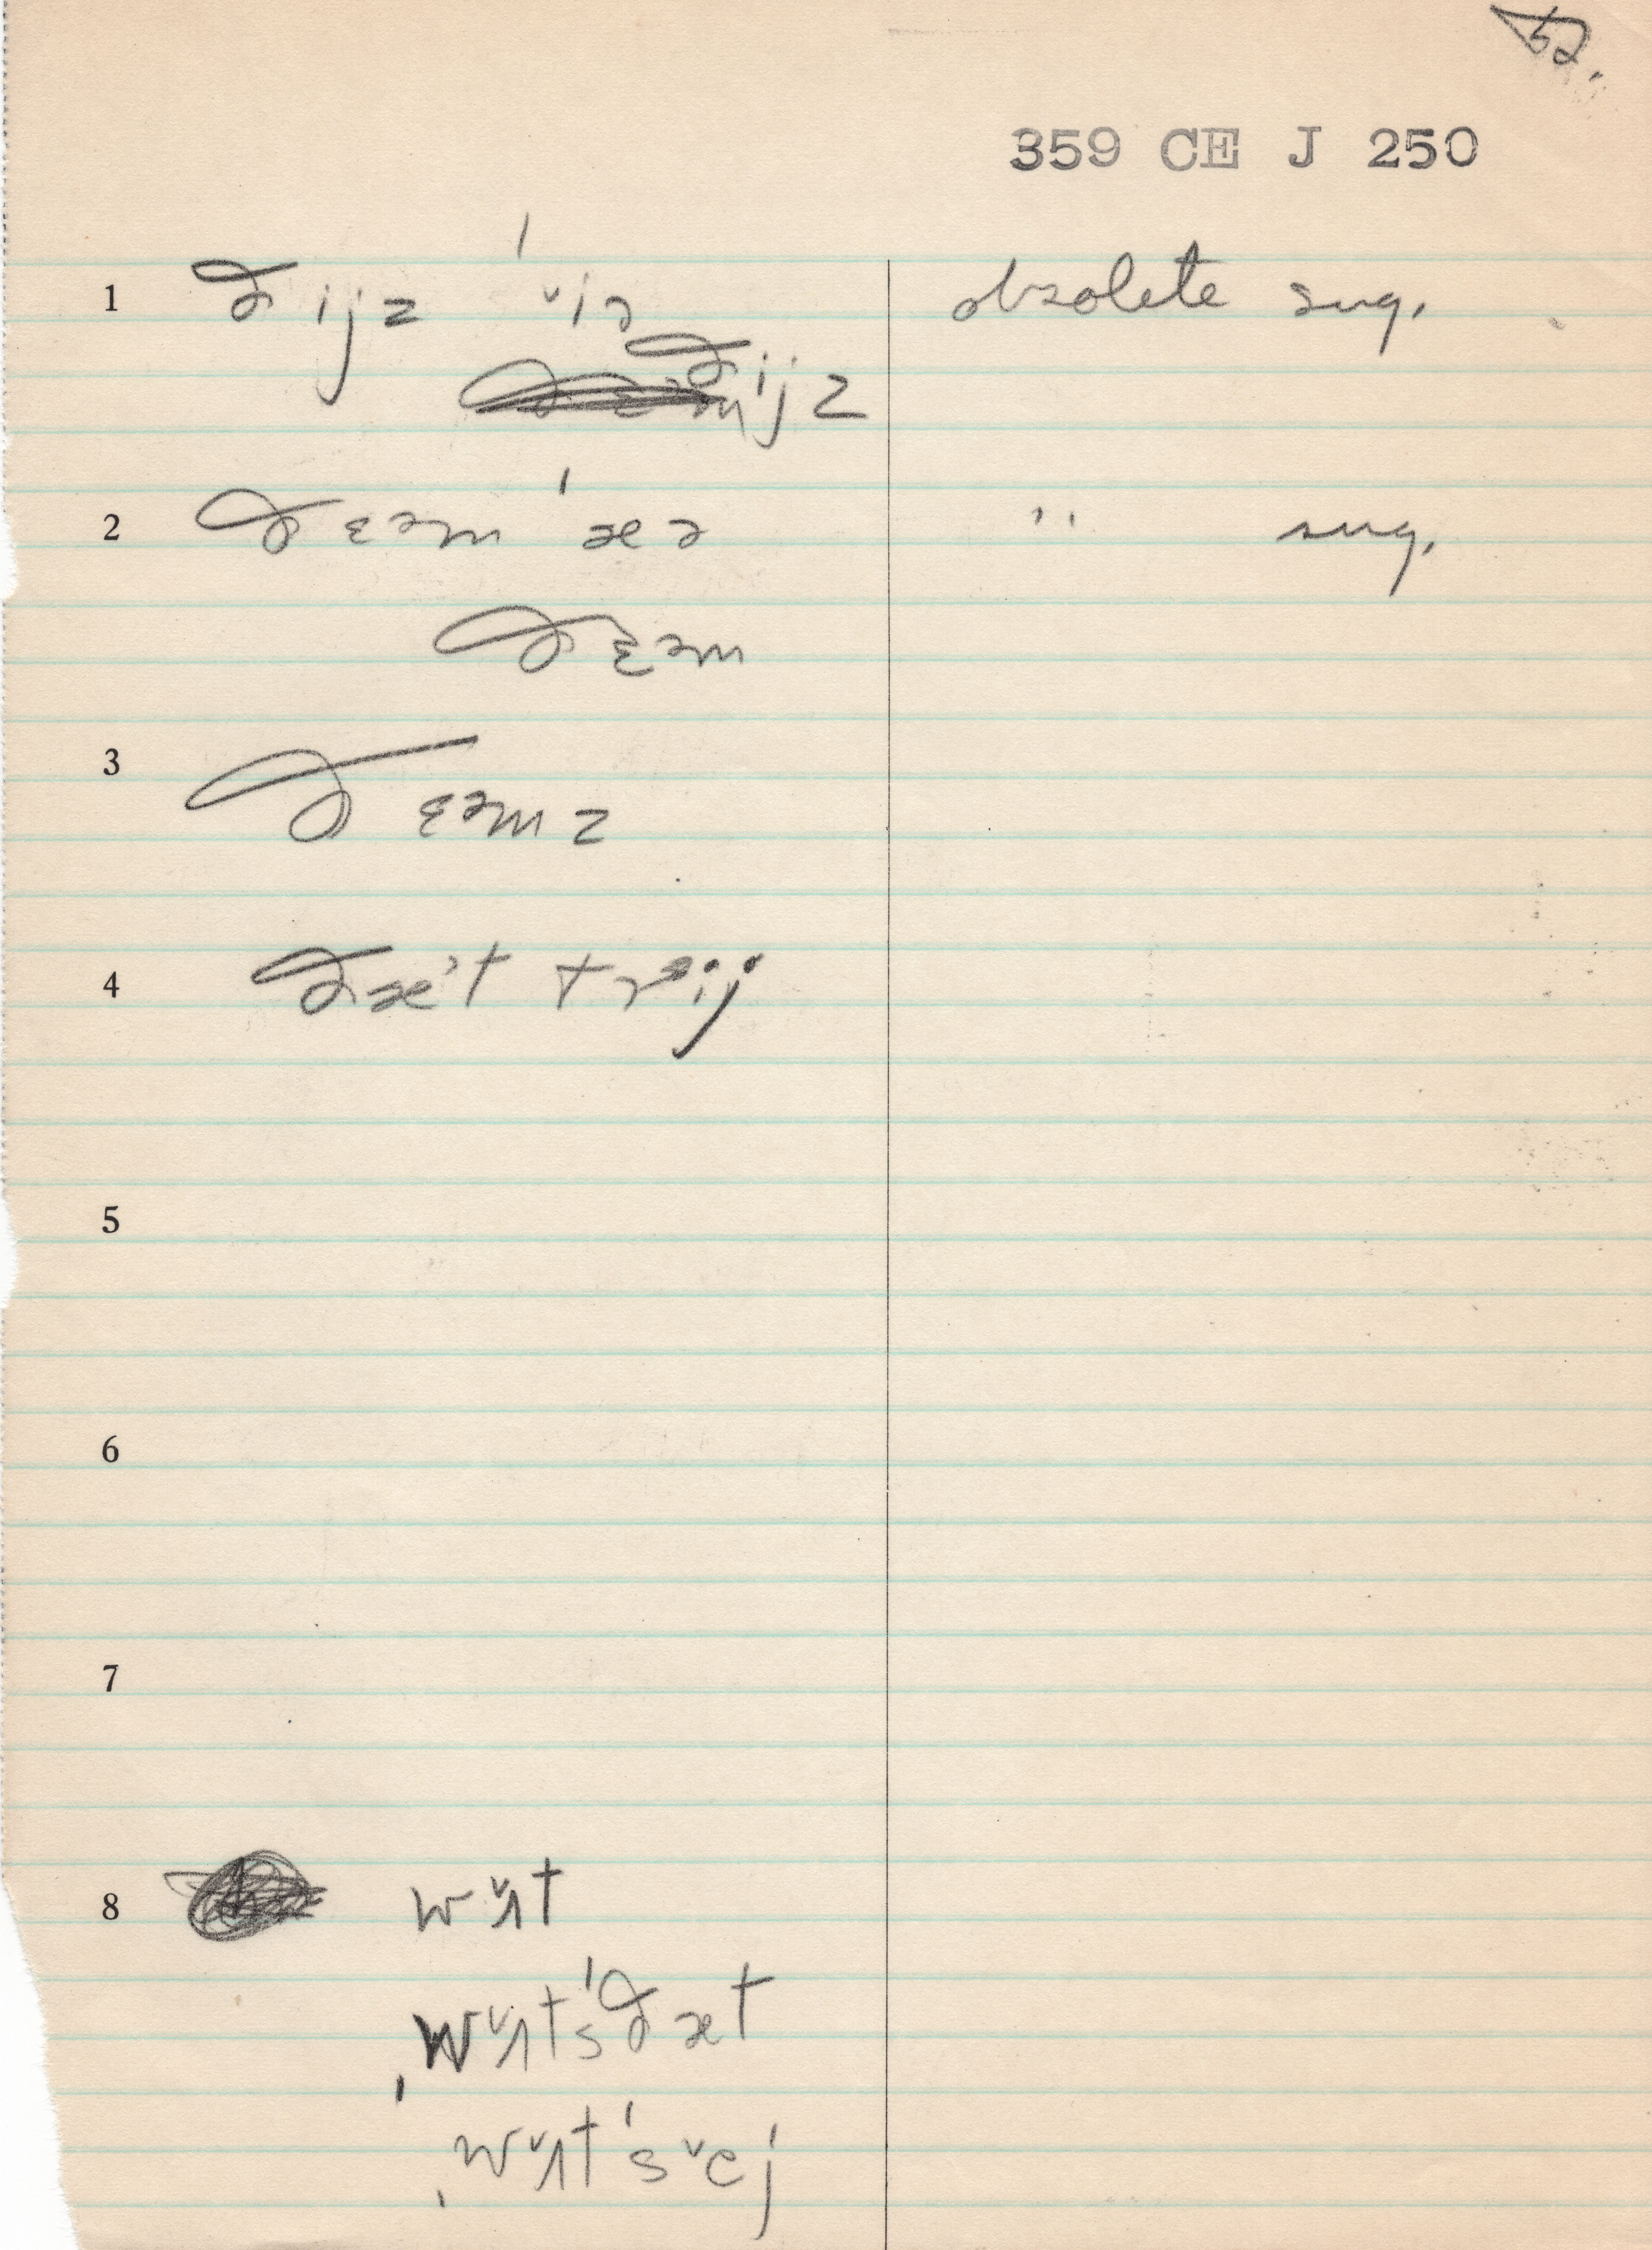 52.
359 CE J 250
1 ðijz ˈv̌iə obsolete sug.
ðijz
2 ðɛəm ˈæə " sug.
ðɛəm
3 ðɛəmz
4 ðæˈt trᵊij
5
6
7
8 wʌ̌t
ˌwʌ̌tsˈðæt
ˌwʌ̌tˈsv̌ej